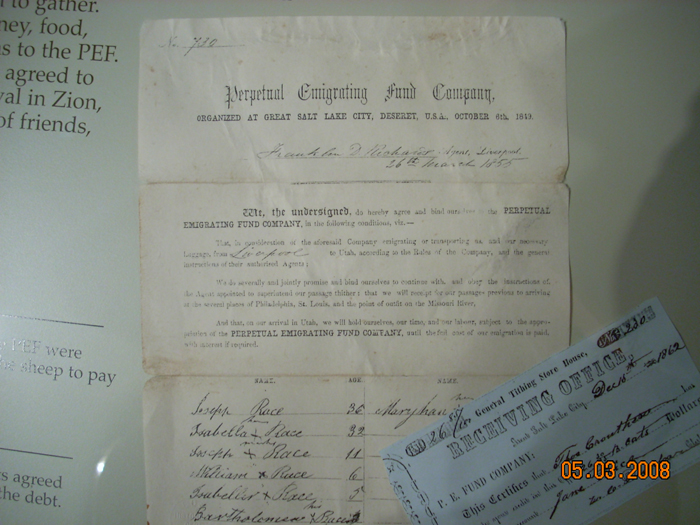 to gather.
ney, food,
as to the PEF.
agreed to
val in Zion,
of friends,
PEF were
sheep to pay
rs agreed
the debt.
No 730
Perpetual Emigrating Fund Company,
ORGANIZED AT GREAT SALT LAKE CITY, DESERET, U.S.A., OCTOBER 6th, 1849.
Franklin D Richards Agent, Liverpool,
26th March 1855
We, the undersigned, do hereby agree and bind ourselves to the PERPETUAL
EMIGRATING FUND COMPANY, in the following conditions, viz.—
That, in consideration of the aforesaid Company emigrating or transporting us, and our necessary
Luggage, from Liverpool to Utah, according to the Rules of the Company, and the general
instructions of their authorized Agents;
We do severally and jointly promise and bind ourselves to continue with, and obey the instructions of,
the Agent appointed to superintend our passage thither; that we will receipt for our passages previous to arriving
at the several places of Philadelphia, St. Louis, and the point of outfit on the Missouri River.
And that, on our arrival in Utah, we will hold ourselves, our time, and our labour, subject to the appro-
priation of the PERPETUAL EMIGRATING FUND COMPANY, until the full cost of our emigration is paid,
with interest if required.
NAME. AGE. NAME.
Joseph Race 36 Maryhan
Isabella x Race 32
Joseph x Race 11
William x Race 6
Isabella x Race 5
Bartholomew x Race
General Tithing Store House,
RECEIVING OFFICE
Great Salt Lake City, Dec 1862
P. E. FUND COMPANY:
This Certifies that
Dollars
05.03.2008